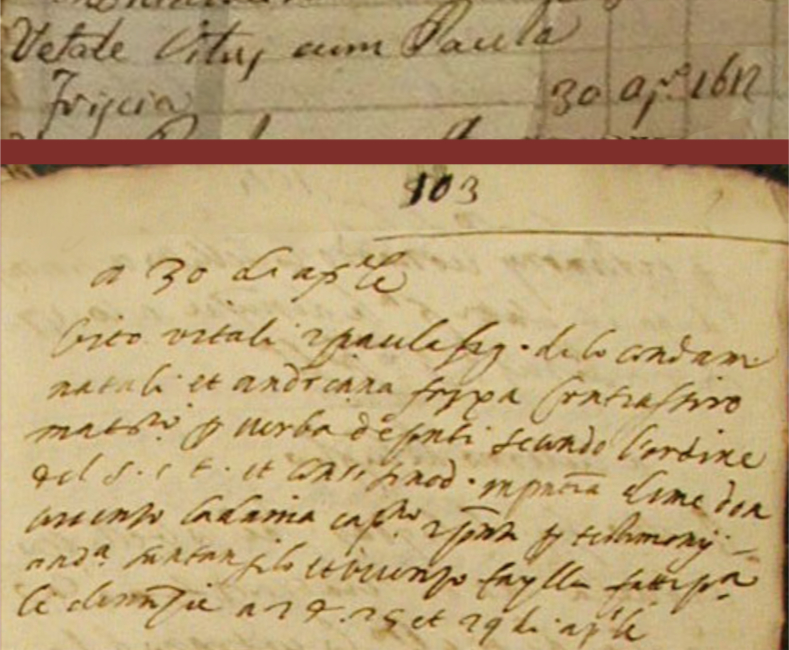 Vetale Vitus cum Paula
Friscia 30 apr. 1612
103
a 30 di aprile
Vito vitali et paula fig. de lo condam
natali et andriana frixa contrassiro
matrio p verba de pnti secundo l'ordine
del s. c. t. et const. sinod. in pntia di me don
vicenso cap. et pnti p testimonij
anda et vicenso fatti p
le denuntie a 24. 25 et 29 di aprile